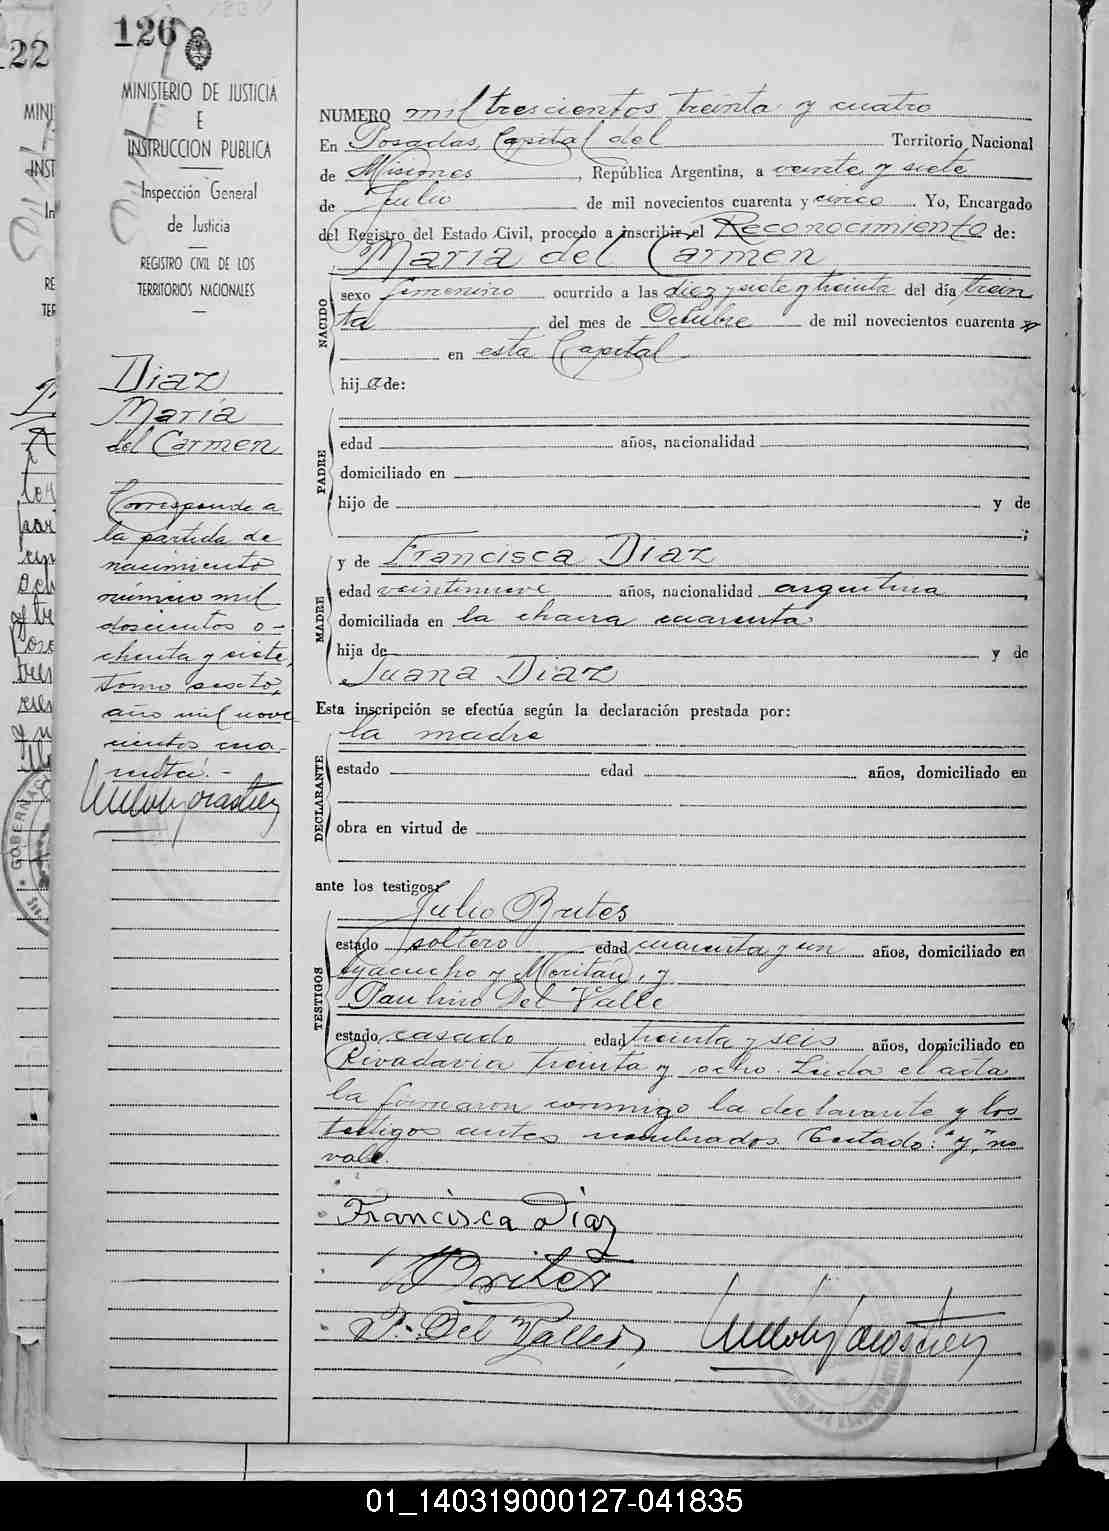 126
22
MINISTERIO DE JUSTICIA
E
INSTRUCCION PUBLICA
Inspección General
de Justicia
REGISTRO CIVIL DE LOS
TERRITORIOS NACIONALES
Diaz
María
del Carmen
Corresponde a
la partida de
nacimiento
número mil
doscientos o-
chenta y siete,
tomo sexto,
año mil nove
cientos cua-
renta.-
NUMERO mil trescientos treinta y cuatro
En Posadas, Capital del Territorio Nacional
de Misiones, República Argentina, a veinte y siete
de Julio de mil novecientos cuarenta y cinco. Yo, Encargado
del Registro del Estado Civil, procedo a inscribir el Reconocimiento de:
María del Carmen
NACIDO
sexo femenino ocurrido a las diez y siete y treinta del día trein
ta del mes de Octubre de mil novecientos cuarenta y
en esta Capital
hij a de:
PADRE
edad años, nacionalidad
domiciliado en
hijo de y de
;
MADRE
y de Francisca Diaz
edad veintinueve años, nacionalidad argentina
domiciliada en la chacra cuarenta
hija de y de
Juana Diaz
Esta inscripción se efectúa según la declaración prestada por:
la madre
DECLARANTE
estado edad años, domiciliado en
obra en virtud de
ante los testigos:
Julio Brites
TESTIGOS
estado soltero edad cuarenta y un años, domiciliado en
Ayacucho y Moritán, y
Paulino Del Valle
estado casado edad treinta y seis años, domiciliado en
Rivadavia treinta y ocho. Leida el acta
la firmaron conmigo la declarante y los
testigos antes nombrados. Testado: "y", no
vale.
Francisca Diaz
Brites
P. Del Valle
01_140319000127-041835